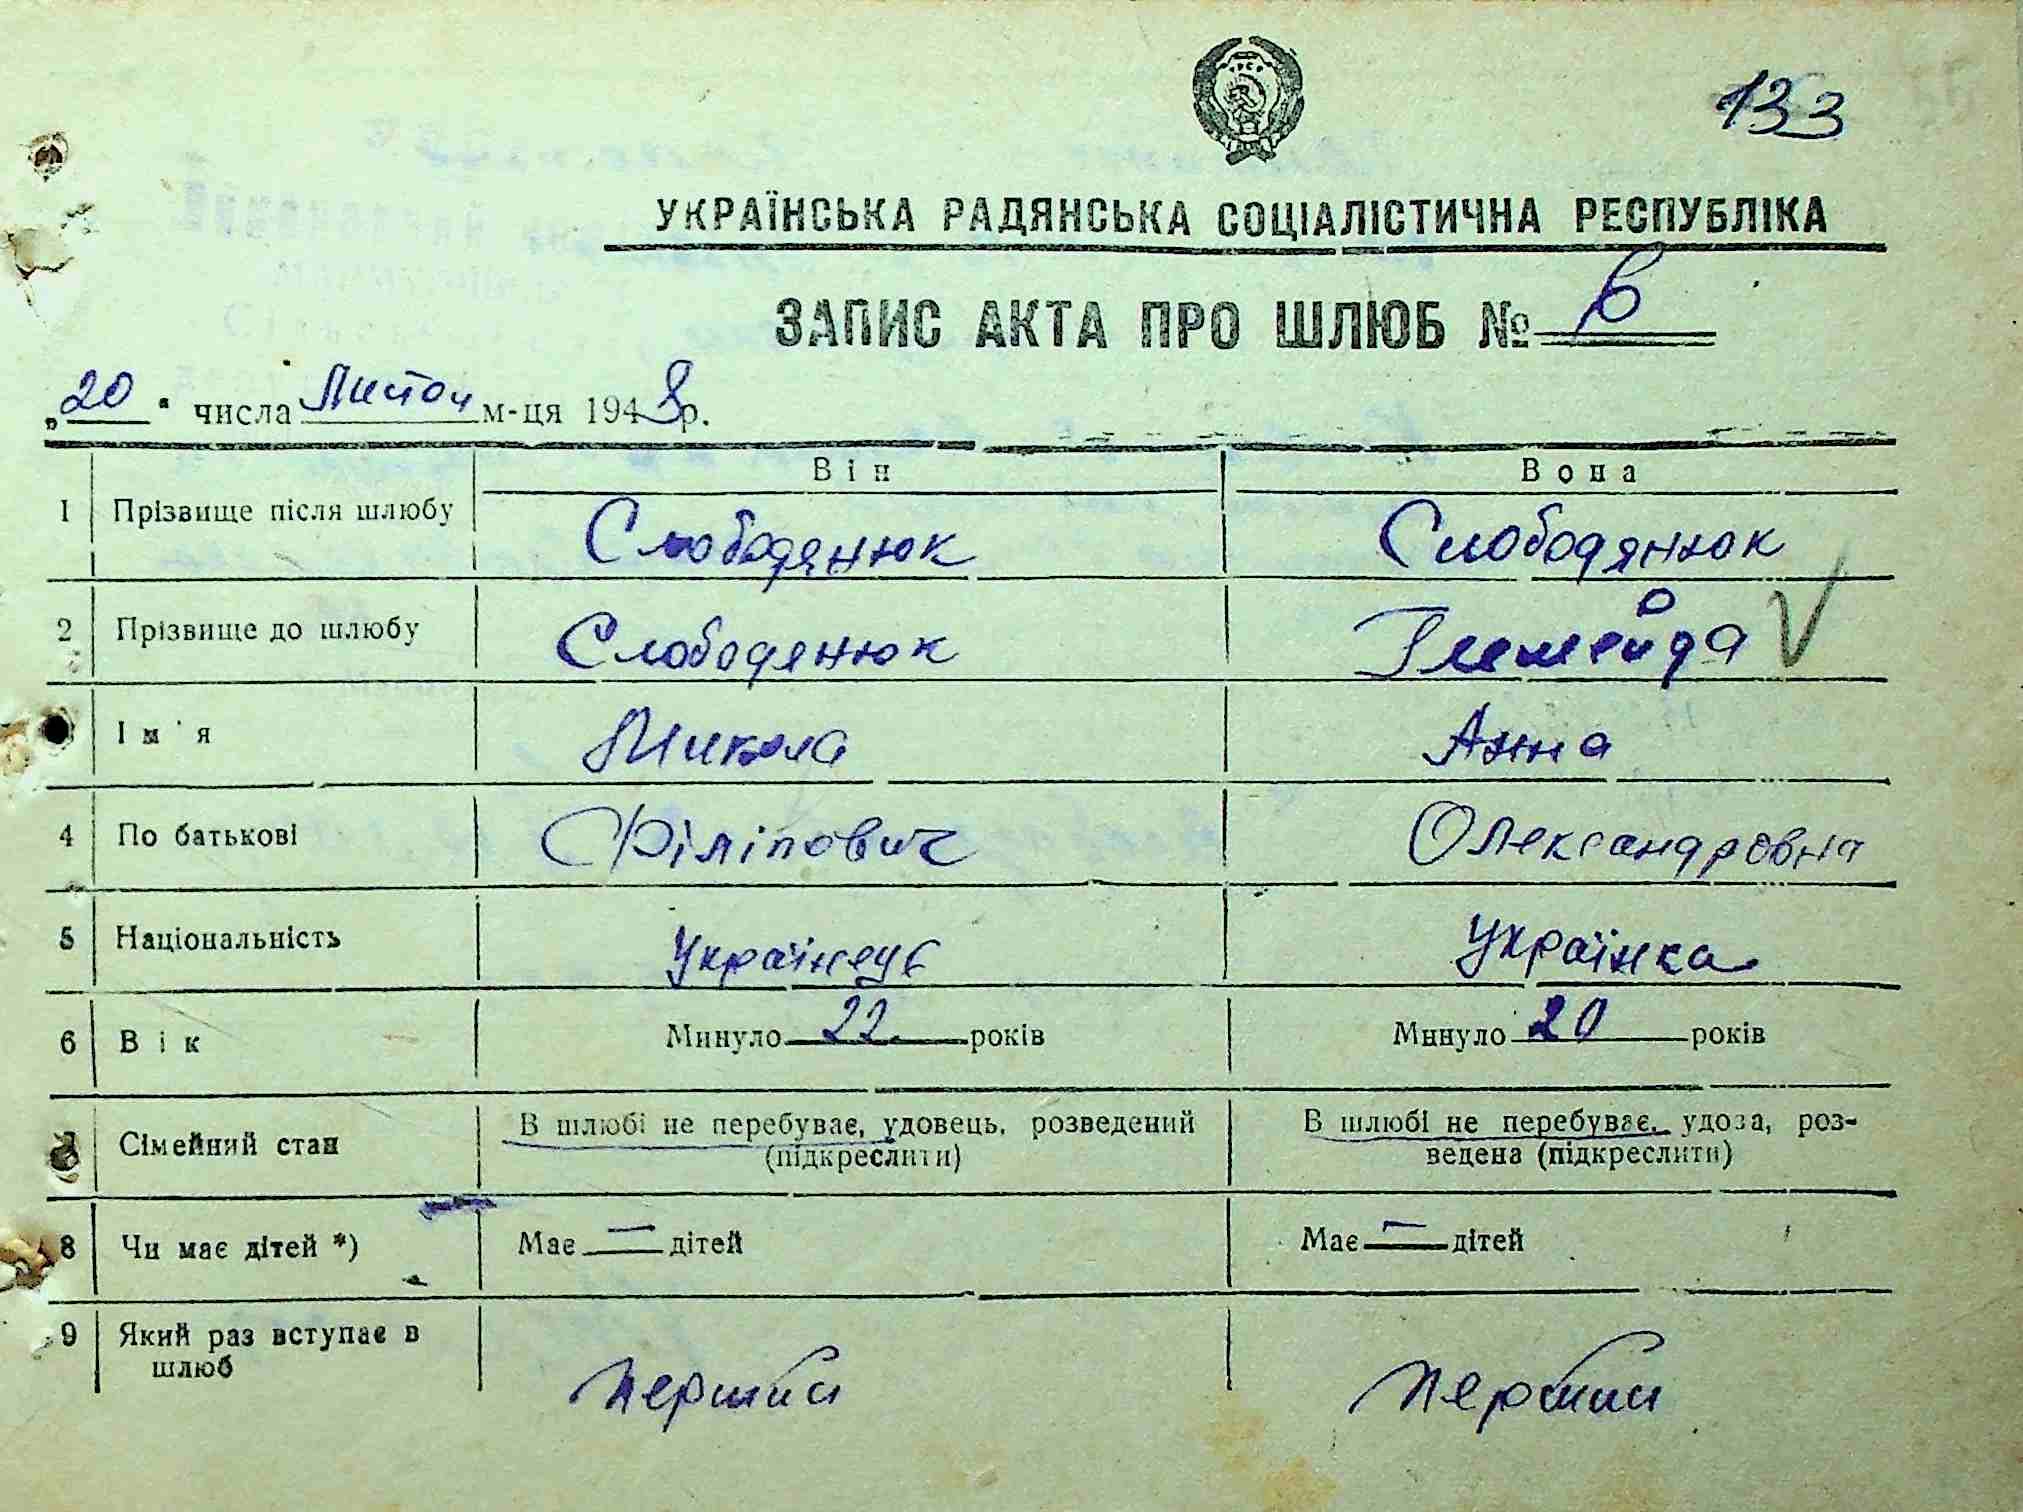 133
УКРАЇНСЬКА РАДЯНСЬКА СОЦІАЛІСТИЧНА РЕСПУБЛІКА
ЗАПИС АКТА ПРО ШЛЮБ № 6
„20“ числа Листоп м-ця 1948 р.
Він Вона
1 Прізвище після шлюбу Слободянюк Слободянюк
2 Прізвище до шлюбу Слободянюк
Ім'я Микола Анна
4 По батькові Філіпович Олександровна
5 Національність Українець Українка
6 Вік Минуло 22 років Минуло 20 років
7 Сімейний стан В шлюбі не перебуває, удовець, розведений (підкреслити) В шлюбі не перебуває, удова, роз-
ведена (підкреслити)
8 Чи має дітей *) Має — дітей Має — дітей
9 Який раз вступає в
шлюб Перший Перший